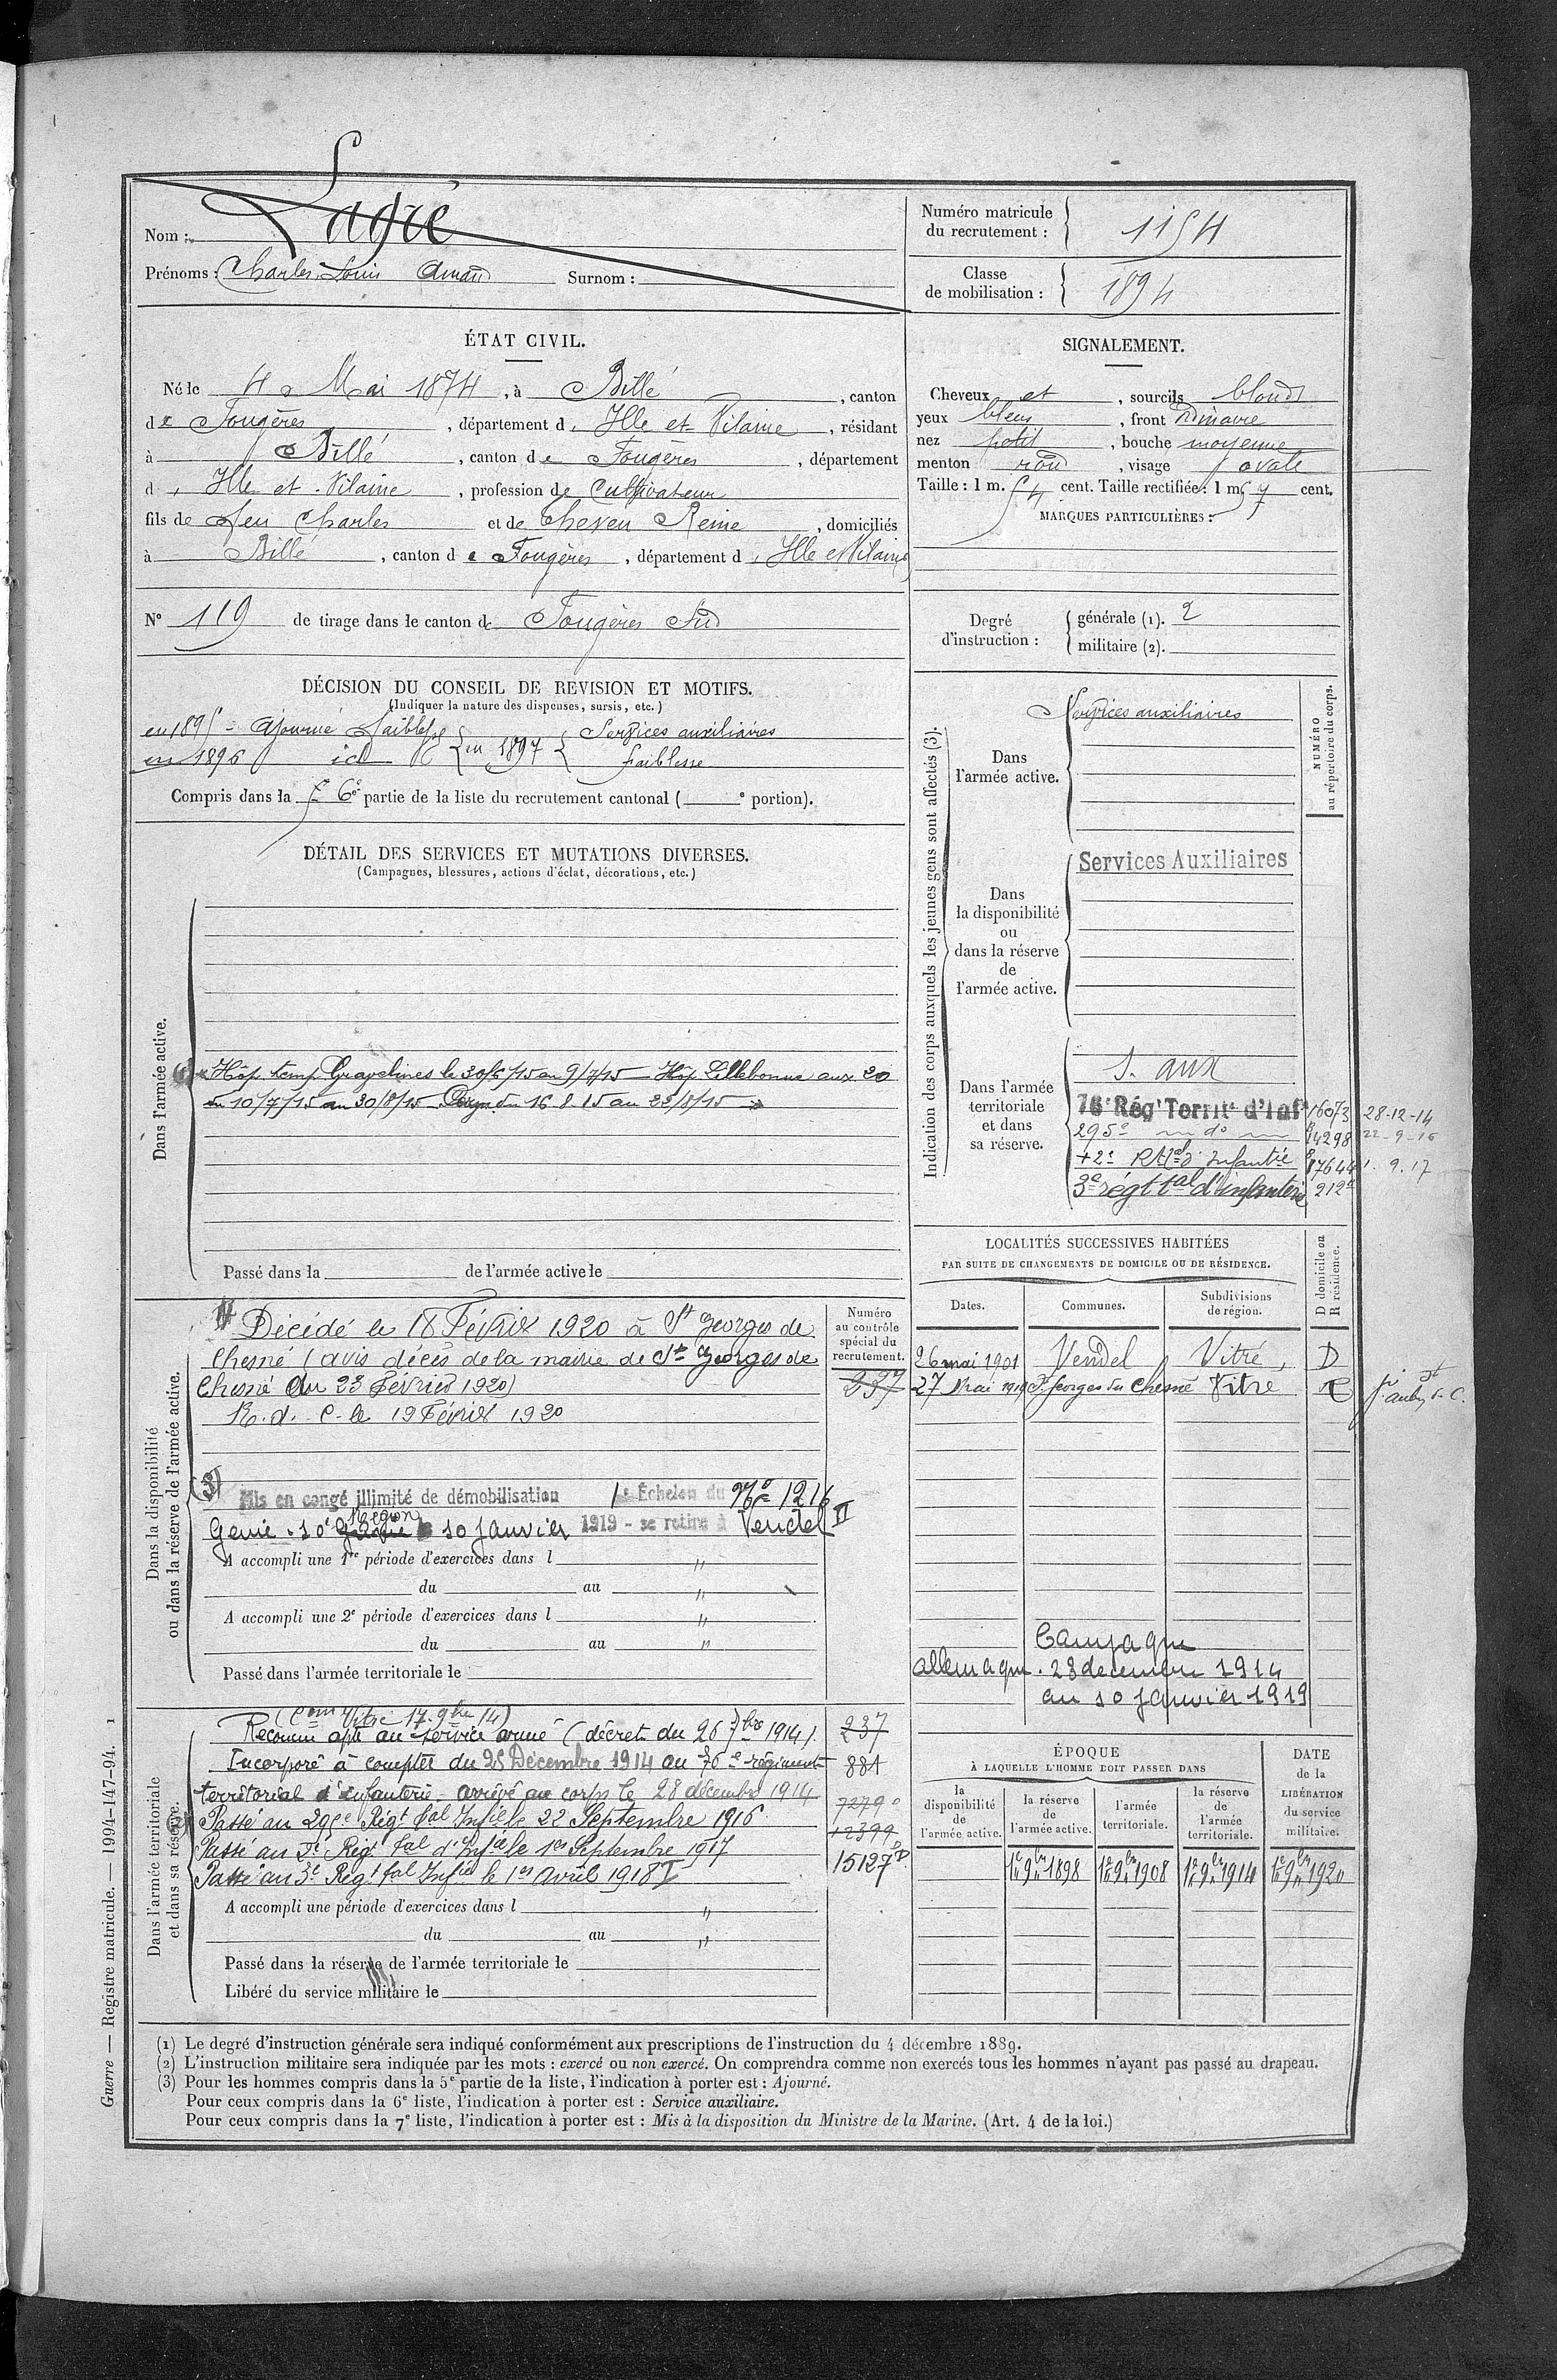 Nom : Lagré
Prénoms : Charles Louis Amand Surnom :
Numéro matricule du recrutement : 1154
Classe de mobilisation : 1894
ÉTAT CIVIL.
Né le 4 Mai 1874, à Billé, canton
de Fougères, département d'Ille et Vilaine, résidant
à Billé, canton de Fougères, département
d'Ille et Vilaine, profession de Cultivateur
fils de feu Charles et de Cheveu Reine, domiciliés
à Billé, canton de Fougères, département d'Ille et Vilaine
N° 119 de tirage dans le canton de Fougères Sud
SIGNALEMENT.
Cheveux et, sourcils blonds
yeux bleus, front ordinaire
nez petit, bouche moyenne
menton rond, visage ovale
Taille : 1 m. 54 cent. Taille rectifiée : 1 m. 57 cent.
MARQUES PARTICULIÈRES :
Degré d'instruction :
générale (1). 2
militaire (2).
DÉCISION DU CONSEIL DE REVISION ET MOTIFS.
(Indiquer la nature des dispenses, sursis, etc.)
en 1895 = ajourné faiblesse
en 1896 id
en 1897 Services auxiliaires
faiblesse
Compris dans la 6e partie de la liste du recrutement cantonal ( e portion).
DÉTAIL DES SERVICES ET MUTATIONS DIVERSES.
(Campagnes, blessures, actions d'éclat, décorations, etc.)
Dans l'armée active.
Hôp. temp. Gravelines le 30/6/15 au 9/7/15 — Hôp. Lillebonne aux. 20
du 10/7/15 au 30/8/15 du 16 8 15 au 22/8/15
Passé dans la de l'armée active le
Indication des corps auxquels les jeunes gens sont affectés (3).
NUMÉRO au répertoire du corps.
Dans l'armée active.
Services auxiliaires
Dans la disponibilité ou dans la réserve de l'armée active.
Services Auxiliaires
Dans l'armée territoriale et dans sa réserve.
S. aux
76e Régt Territl d'Inf 16073 28-12-14
295e d° 14298 22-9-16
+2e Rt tal d'Infantie 17644 1. 9. 17
3e régt tal d'infanterie 212
LOCALITÉS SUCCESSIVES HABITÉES
PAR SUITE DE CHANGEMENTS DE DOMICILE OU DE RÉSIDENCE.
Dates. Communes. Subdivisions de région. D domicile ou R résidence.
26 mai 1901 Vendel Vitré, D
27 Mai 1919 St Georges du Chesné Vitré R
Campagne
allemagne. 28 decembre 1914
au 10 Janvier 1919
Dans la disponibilité ou dans la réserve de l'armée active.
Numéro au contrôle spécial du recrutement.
237
Décédé le 18 Février 1920 à St Georges de
Chesné (avis décès de la mairie de St Georges de
Chesné du 23 Février 1920)
R. d. C. le 19 Février 1920
(3) Mis en congé illimité de démobilisation 1r Échelon du N° 1216
Génie. 10e Région le 10 Janvier 1919 - se retire à Vendel II
A accompli une 1re période d'exercices dans l "
du au "
A accompli une 2e période d'exercices dans l "
du au "
Passé dans l'armée territoriale le
Dans l'armée territoriale et dans sa réserve.
(Com Vitré 17 9bre 14)
Reconnu apte au service armé (décret du 26 7bre 1914). 237
Incorporé à compter du 28 Décembre 1914 au 76e régiment 881
territorial d'infanterie. arrivé au corps le 28 décembre 1914 7279
(2) Passé au 295e Régt tal Infie le 22 Septembre 1916 12399
Passé au 2e Regt tal d'Infie le 1er Septembre 1917
15127
Passé au 3e Regt tal Infie le 1er Avril 1918 I
A accompli une période d'exercices dans l "
du au "
Passé dans la réserve de l'armée territoriale le
Libéré du service militaire le
ÉPOQUE
À LAQUELLE L'HOMME DOIT PASSER DANS
la disponibilité de l'armée active.
la réserve de l'armée active.
l'armée territoriale.
la réserve de l'armée territoriale.
DATE de la LIBÉRATION du service militaire.
1er 9bre 1898 1er 9bre 1908 1er 9bre 1914 1er 9bre 1920
(1) Le degré d'instruction générale sera indiqué conformément aux prescriptions de l'instruction du 4 décembre 1889.
(2) L'instruction militaire sera indiquée par les mots : exercé ou non exercé. On comprendra comme non exercés tous les hommes n'ayant pas passé au drapeau.
(3) Pour les hommes compris dans la 5e partie de la liste, l'indication à porter est : Ajourné.
Pour ceux compris dans la 6e liste, l'indication à porter est : Service auxiliaire.
Pour ceux compris dans la 7e liste, l'indication à porter est : Mis à la disposition du Ministre de la Marine. (Art. 4 de la loi.)
Guerre — Registre matricule. — 1994-147-94. 1